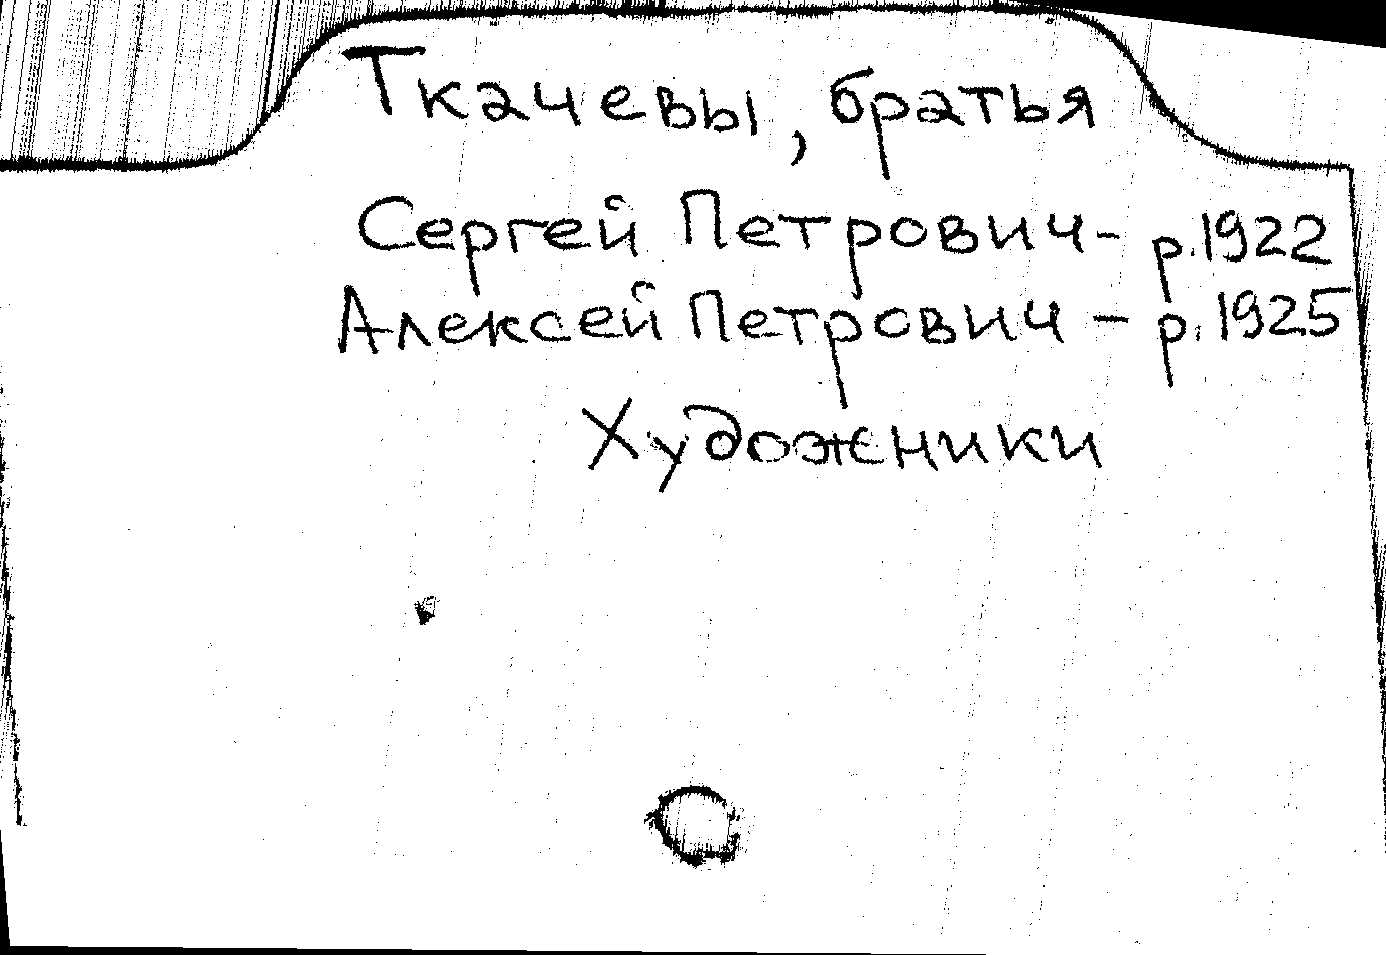 Ткачевы, братья
Сергей Петрович - р.1922
Алексей Петрович - р.1925
Художники